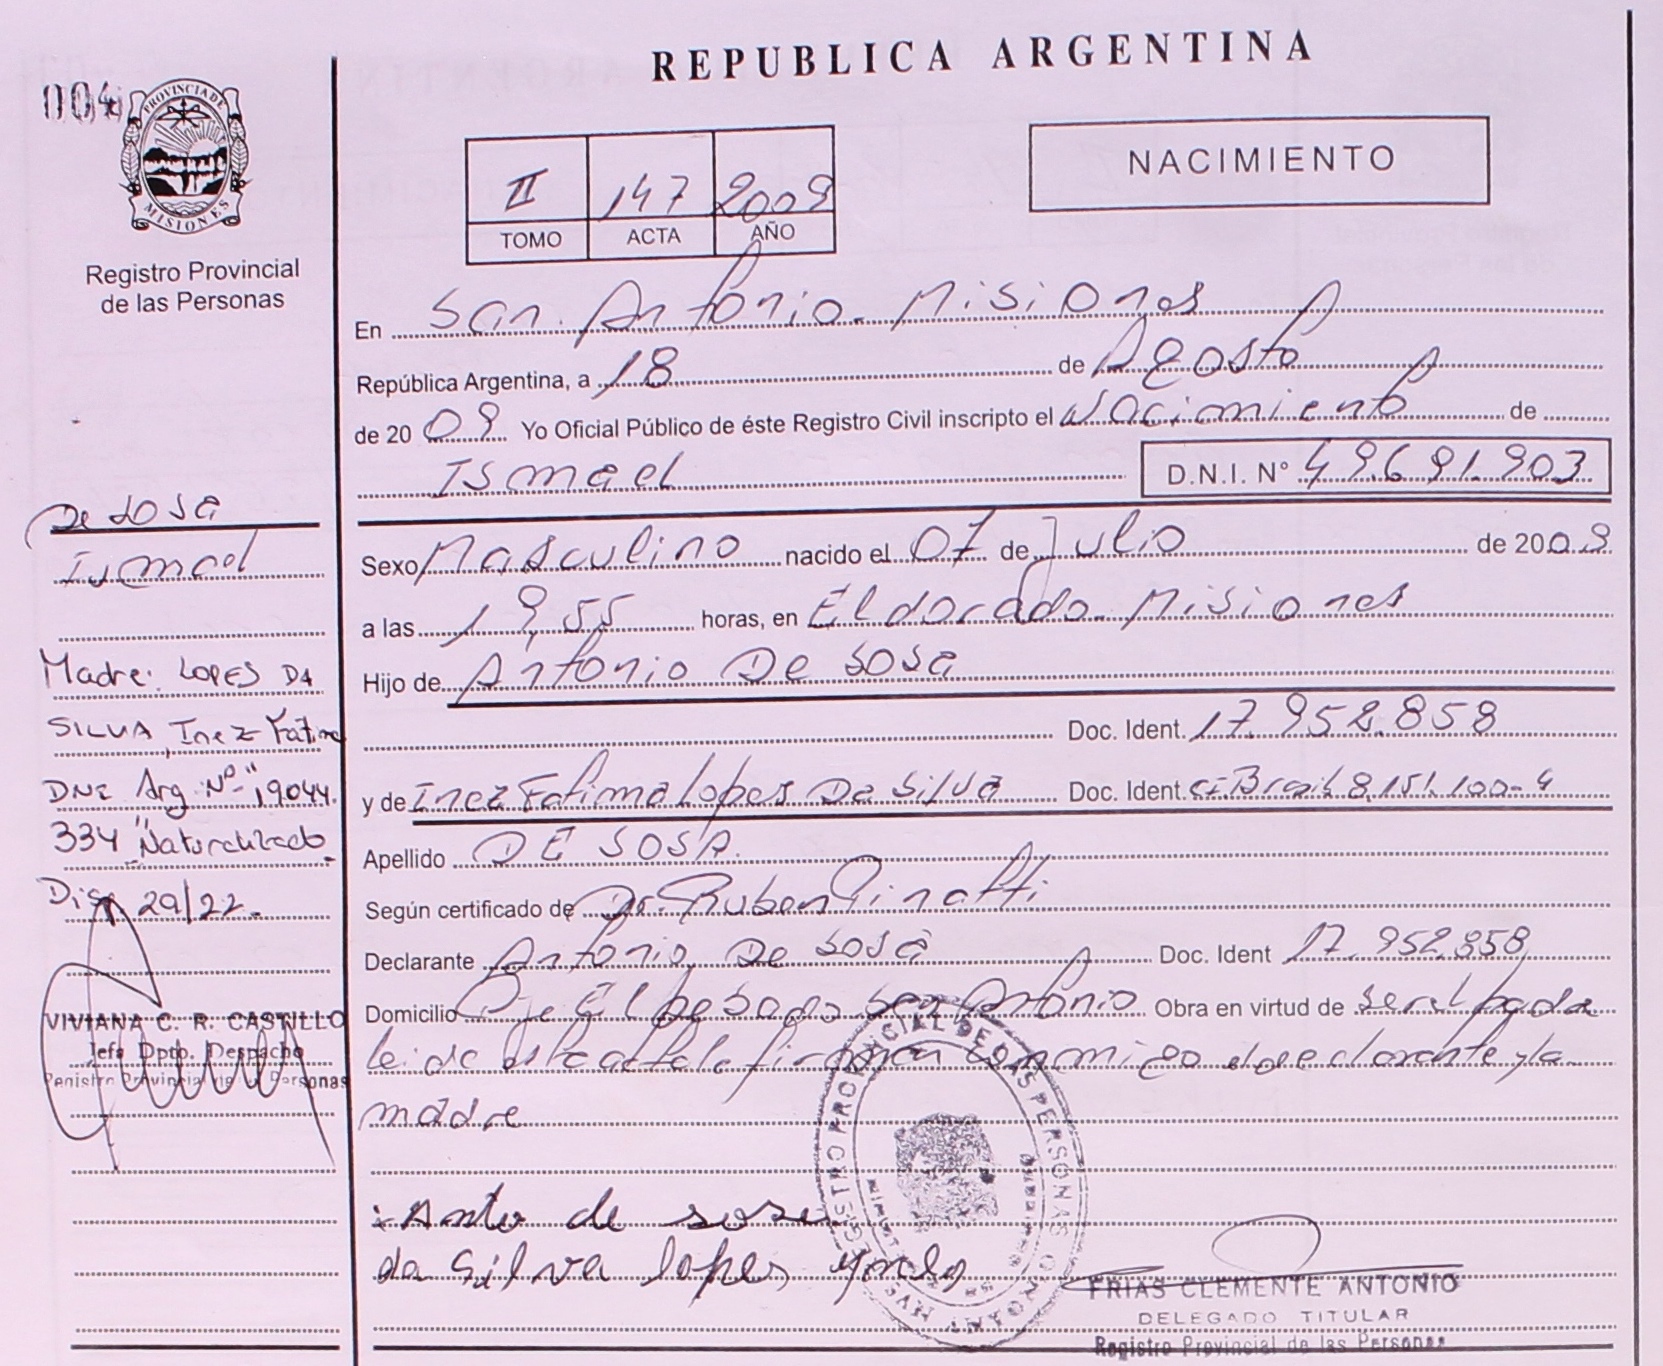 REPUBLICA ARGENTINA
004
PROVINCIA DE
MISIONES
Registro Provincial
de las Personas
NACIMIENTO
II 147 2009
TOMO ACTA AÑO
En San Antonio Misiones
República Argentina, a 18 de Agosto
de 2009 Yo Oficial Público de éste Registro Civil inscripto el Nacimiento de
Ismael D.N.I. Nº 49.691.903
Sexo Masculino nacido el 07 de Julio de 2009
a las 19,55 horas, en Eldorado Misiones
Hijo de Antonio De Sosa
Doc. Ident. 17.952.858
y de Inez Fatima Lopes Da Silva Doc. Ident. C.I. Brasil 8.151.100-4
Apellido DE SOSA
Según certificado de Dr. Ruben Pinatti
Declarante Antonio De Sosa Doc. Ident 17.952.858
Domicilio Pje El San Antonio Obra en virtud de ser el padre
leida esta acta la firman conmigo el declarante y la
madre
Anto de sosa
da Silva lopes
REGISTRO PROVINCIAL DE LAS PERSONAS
FRIAS CLEMENTE ANTONIO
DELEGADO TITULAR
Registro Provincial de las Personas
De Sosa
Ismael
Madre: LOPES DA
SILVA, Inez Fatima
DNI Arg Nº "19044.
334" Naturalizado
Disp 29/22.
VIVIANA C. R. CASTILLO
Jefa Dpto. Despacho
Registro Provincial de las Personas